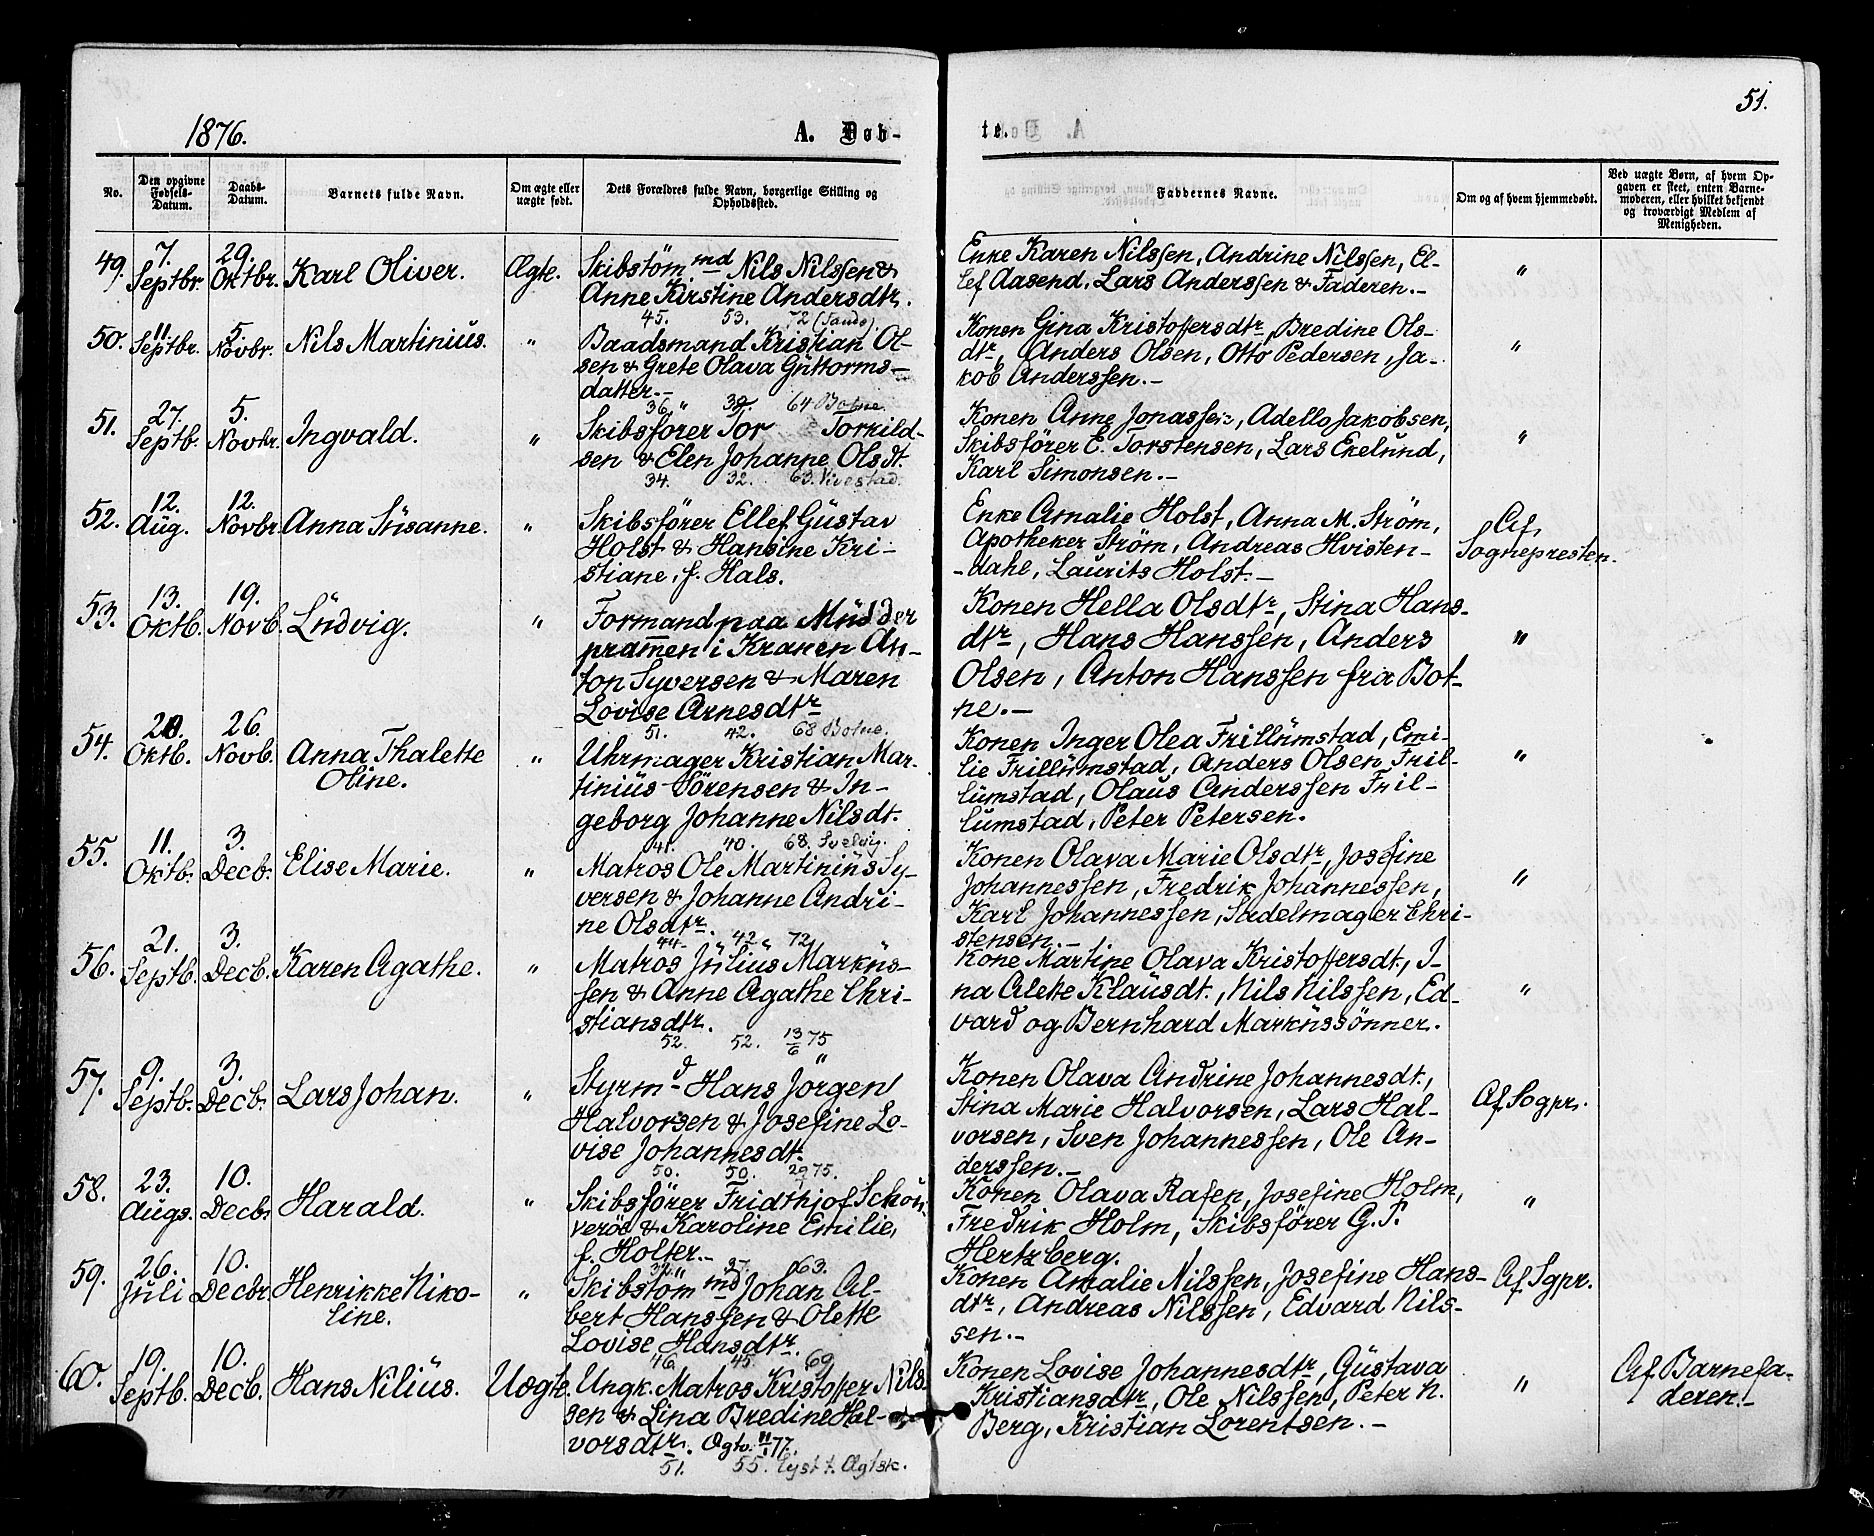 51.
1876.
A. Døb-
te.
No.
Den opgivne Fødsels-Datum.
Daabs-Datum.
Barnets fulde Navn.
Om ægte eller uægte født.
Dets Forældres fulde Navn, borgerlige Stilling og Opholdssted.
Faddernes Navne.
Om og af hvem hjemmedøbt.
Ved uægte Børn, af hvem Op-
gaven er skeet, enten Barne-
moderen, eller hvilket bekjendt
og troværdigt Medlem af
Menigheden.
49. 7. Septbr. 29. Oktbr. Karl Oliver. Ægte.
Skibstömmd Nils Nilssen &
Anne Kirstine Andersdtr.
45. 53. 72 (Sande).
Enke Karen Nilssen, Andrine Nilssen, El-
lef Aasend, Lars Anderssen & Faderen.-
"
50. 11 Septbr. 5. Novbr. Nils Martinius. "
Baadsmand Kristian Ol-
sen & Grete Olava Güttorms-
datter.-
36 " 39. 64 Botne.
Konen Gina Kristoffersdtr, Bredine Ols-
dtr, Anders Olsen, Otto Pedersen, Ja-
kob Anderssen.-
"
51. 27. Septb. 5. Novbr. Ingvald. "
Skibsförer Tor Torkild-
sen & Elen Johanne Olsdt.
34. 32. 63. Vivestad.
Konen Anne Jonassen, Adello Jakobsen,
Skibsförer E. Torstensen, Lars Ekelund,
Karl Simonsen.-
"
52. 12. Aug. 12. Novbr. Anna Süsanne. "
Skibsförer Ellef Güstav
Holst & Hansine Kri-
stiane, f. Hals.
Enke Amalie Holst, Anna M. Ström,
Apotheker Ström, Andreas Hvisten-
-dahl, Laurits Holst.-
Af
Sognepresten.
53. 13. Oktb. 19. Novb. Lüdvig. "
Formand paa Müdder
prammen i Kranen An-
ton Syversen & Maren
Lovise Arnesdtr
51. 42. 68 Botne.
Konen Hella Olsdtr, Stina Hans-
dtr, Hans Hanssen, Anders
Olsen, Anton Hanssen fra Bot-
ne.-
"
54. Oktb. 26. Novb. Anna Thalette
Oline. "
Uhrmager Kristian Mar-
tinius Sörensen & In-
geborg Johanne Nilsdt.
41. 40. 68. Svelvig.
Konen Inger Olea Frillümstad, Emi-
lie Frillümstad, Anders Olsen Fril-
lümstad, Olaus Anderssen Fril-
lumstad, Peter Petersen.
"
55. 11. Oktb. 3. Decb. Elise Marie. "
Matros Ole Martinius Sy-
versen & Johanne Andri-
ne Olsdtr.
44. 42 " 72
Konen Olava Marie Olsdtr, Josefine
Johannessen, Fredrik Johannessen,
Karl Johannessen, Sadelmager Chri-
stensen.-
"
56. 21. Septb. 3. Decb. Karen Agathe. "
Matros Jülius Markus-
sen & Anne Agathe Chri-
stiansdtr.
52. 52. 13/6 75
Kone Martine Olava Kristoffersdt., I-
na Alette Klausdt., Nils Nilssen, Ed-
vard og Bernhard Markussönner.
"
57. 9. Septb. 3. Decb. Lars Johan. "
Styrmd Hans Jörgen
Halvorsen & Josefine Lo-
vise Johannesdt.
50. 50. 75.
Konen Olava Andrine Johannesdt.,
Stina Marie Halvorsen, Lars Hal-
vorsen, Sven Johannessen, Ole An-
derssen.-
Af Sogpr.
58. 23. Augs. 10. Decbr. Harald. "
Skibsförer Fridthjof Schön-
veröe & Karoline Emilie,
f. Holter.-
27. 63.
Konen Olava Rafen, Josefine Holm,
Fredrik Holm, Skibsförer G. P.
Hertzberg.
"
59. 26. Juli 10. Decbr. Henrikke Niko-
line. "
Skibstömmd Johan Al-
bert Hanssen & Olette
Lovise Hansdtr.
46. 45. 69
Konen Amalie Nilssen, Josefine Hans-
dtr, Andreas Nilssen, Edvard Nils-
sen.-
Af Sgpr.
60. 19. Septb. 10. Decb. Hans Nilius. Uægte.
Ungk. Matros Kristoffer Nils-
sen & Lina Bredine Hal-
vorsdtr. Ægtv. 11/1 77.
51. 55. Lyst t. Ægtsk.
Konen Lovise Johannesdtr, Güstava
Kristiansdtr, Ole Nilssen, Peter N.
Berg, Kristian Lorentsen.-
"
Af Barnefa-
deren.-